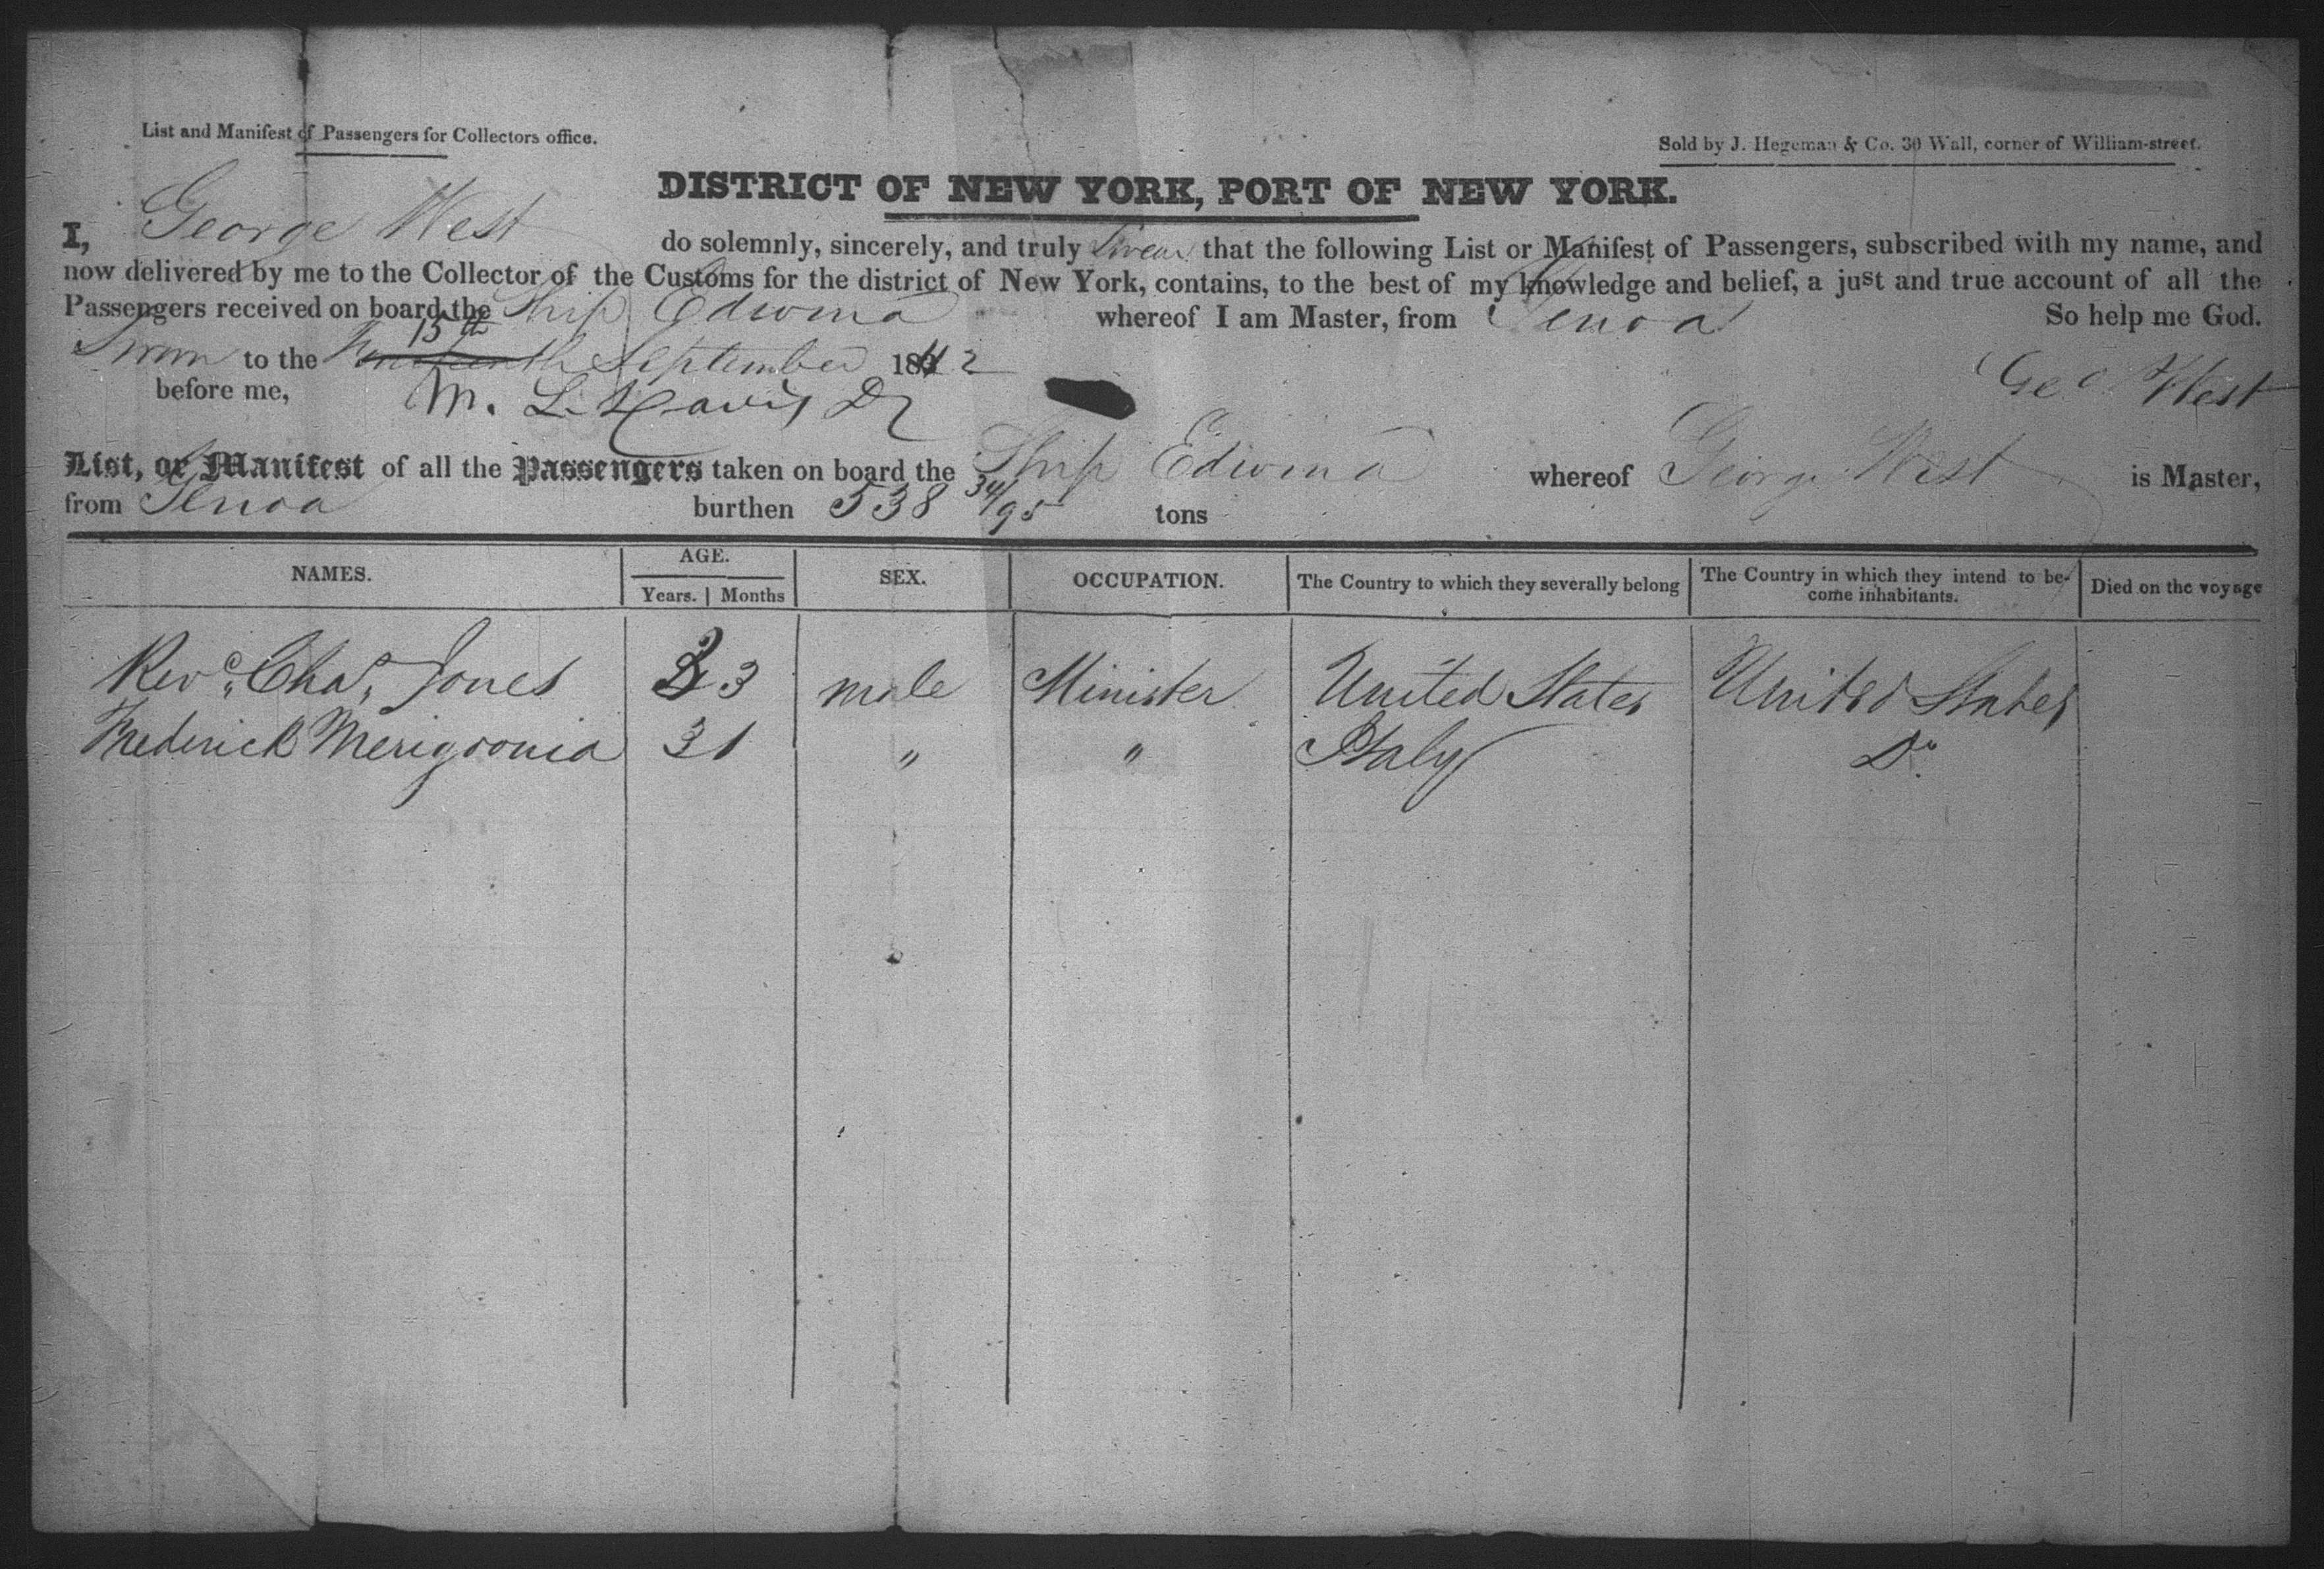 List and Manifest of Passengers for Collectors office.
Sold by J. Hegeman & Co. 30 Wall, corner of William-street.
DISTRICT OF NEW YORK, PORT OF NEW YORK.
I, George West do solemnly, sincerely, and truly Swear that the following List or Manifest of Passengers, subscribed with my name, and
now delivered by me to the Collector of the Customs for the district of New York, contains, to the best of my knowledge and belief, a just and true account of all the
Passengers received on board the Ship Edwina whereof I am Master, from Genoa So help me God.
15th
Sworn to the September 1842
Geo West
before me, M. L. Davis
List, or Manifest of all the Passengers taken on board the Ship Edwina whereof George West is Master,
from Genoa burthen 538 34/95 tons
NAMES. AGE. SEX. OCCUPATION. The Country to which they severally belong The Country in which they intend to be-come inhabitants. Died on the voyage
Years. Months
Revd. Chas. Jones 33 male Minister United States United States
Frederick 31 " " Italy Do.